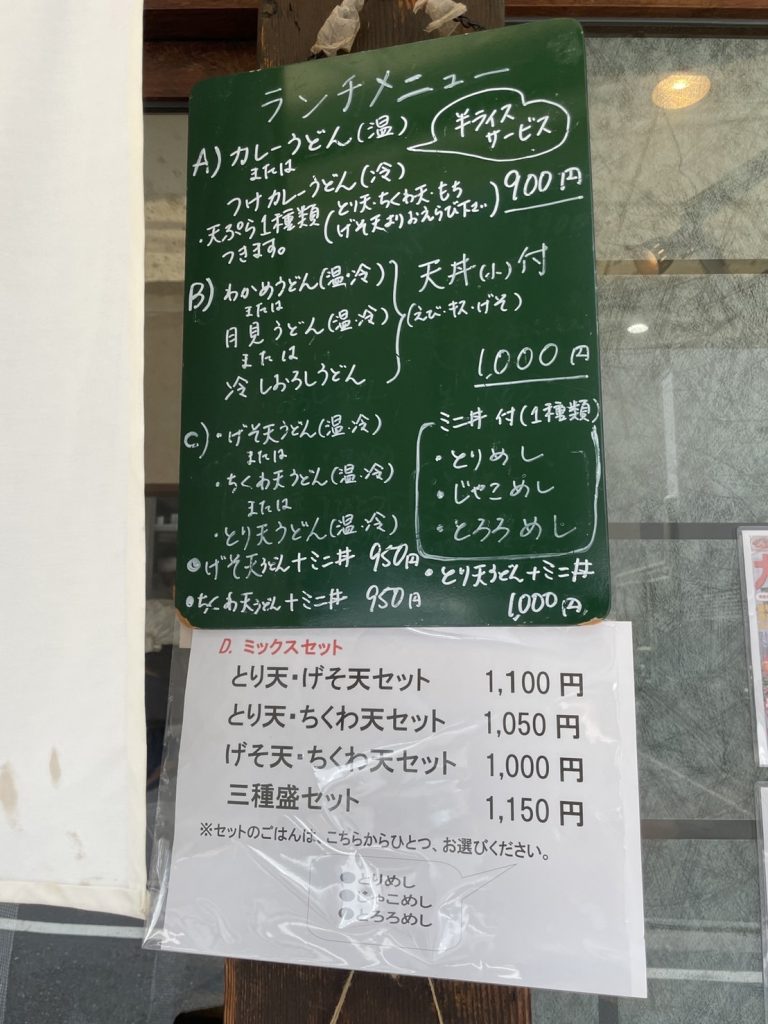 ランチメニュー
A) カレーうどん(温)
または
つけカレーうどん(冷)
半ライス
サービス
・天ぷら1種類
つきます。
(とり天・ちくわ天・もち
げそ天よりおえらび下さい)
900円
B) わかめうどん(温・冷)
または
月見うどん(温・冷)
または
冷しおろしうどん
天丼(小)付
(えび・キス・げそ)
1,000円
C.) ・げそ天うどん(温・冷)
または
・ちくわ天うどん(温・冷)
または
・とり天うどん(温・冷)
ミニ丼付(1種類)
・とりめし
・じゃこめし
・とろろめし
・げそ天うどん+ミニ丼 950円
・ちくわ天うどん+ミニ丼 950円
・とり天うどん+ミニ丼
1,000円
D. ミックスセット
とり天・げそ天セット 1,100円
とり天・ちくわ天セット 1,050円
げそ天・ちくわ天セット 1,000円
三種盛セット 1,150円
※セットのごはんは、こちらからひとつ、お選びください。
●とりめし
●じゃこめし
●とろろめし